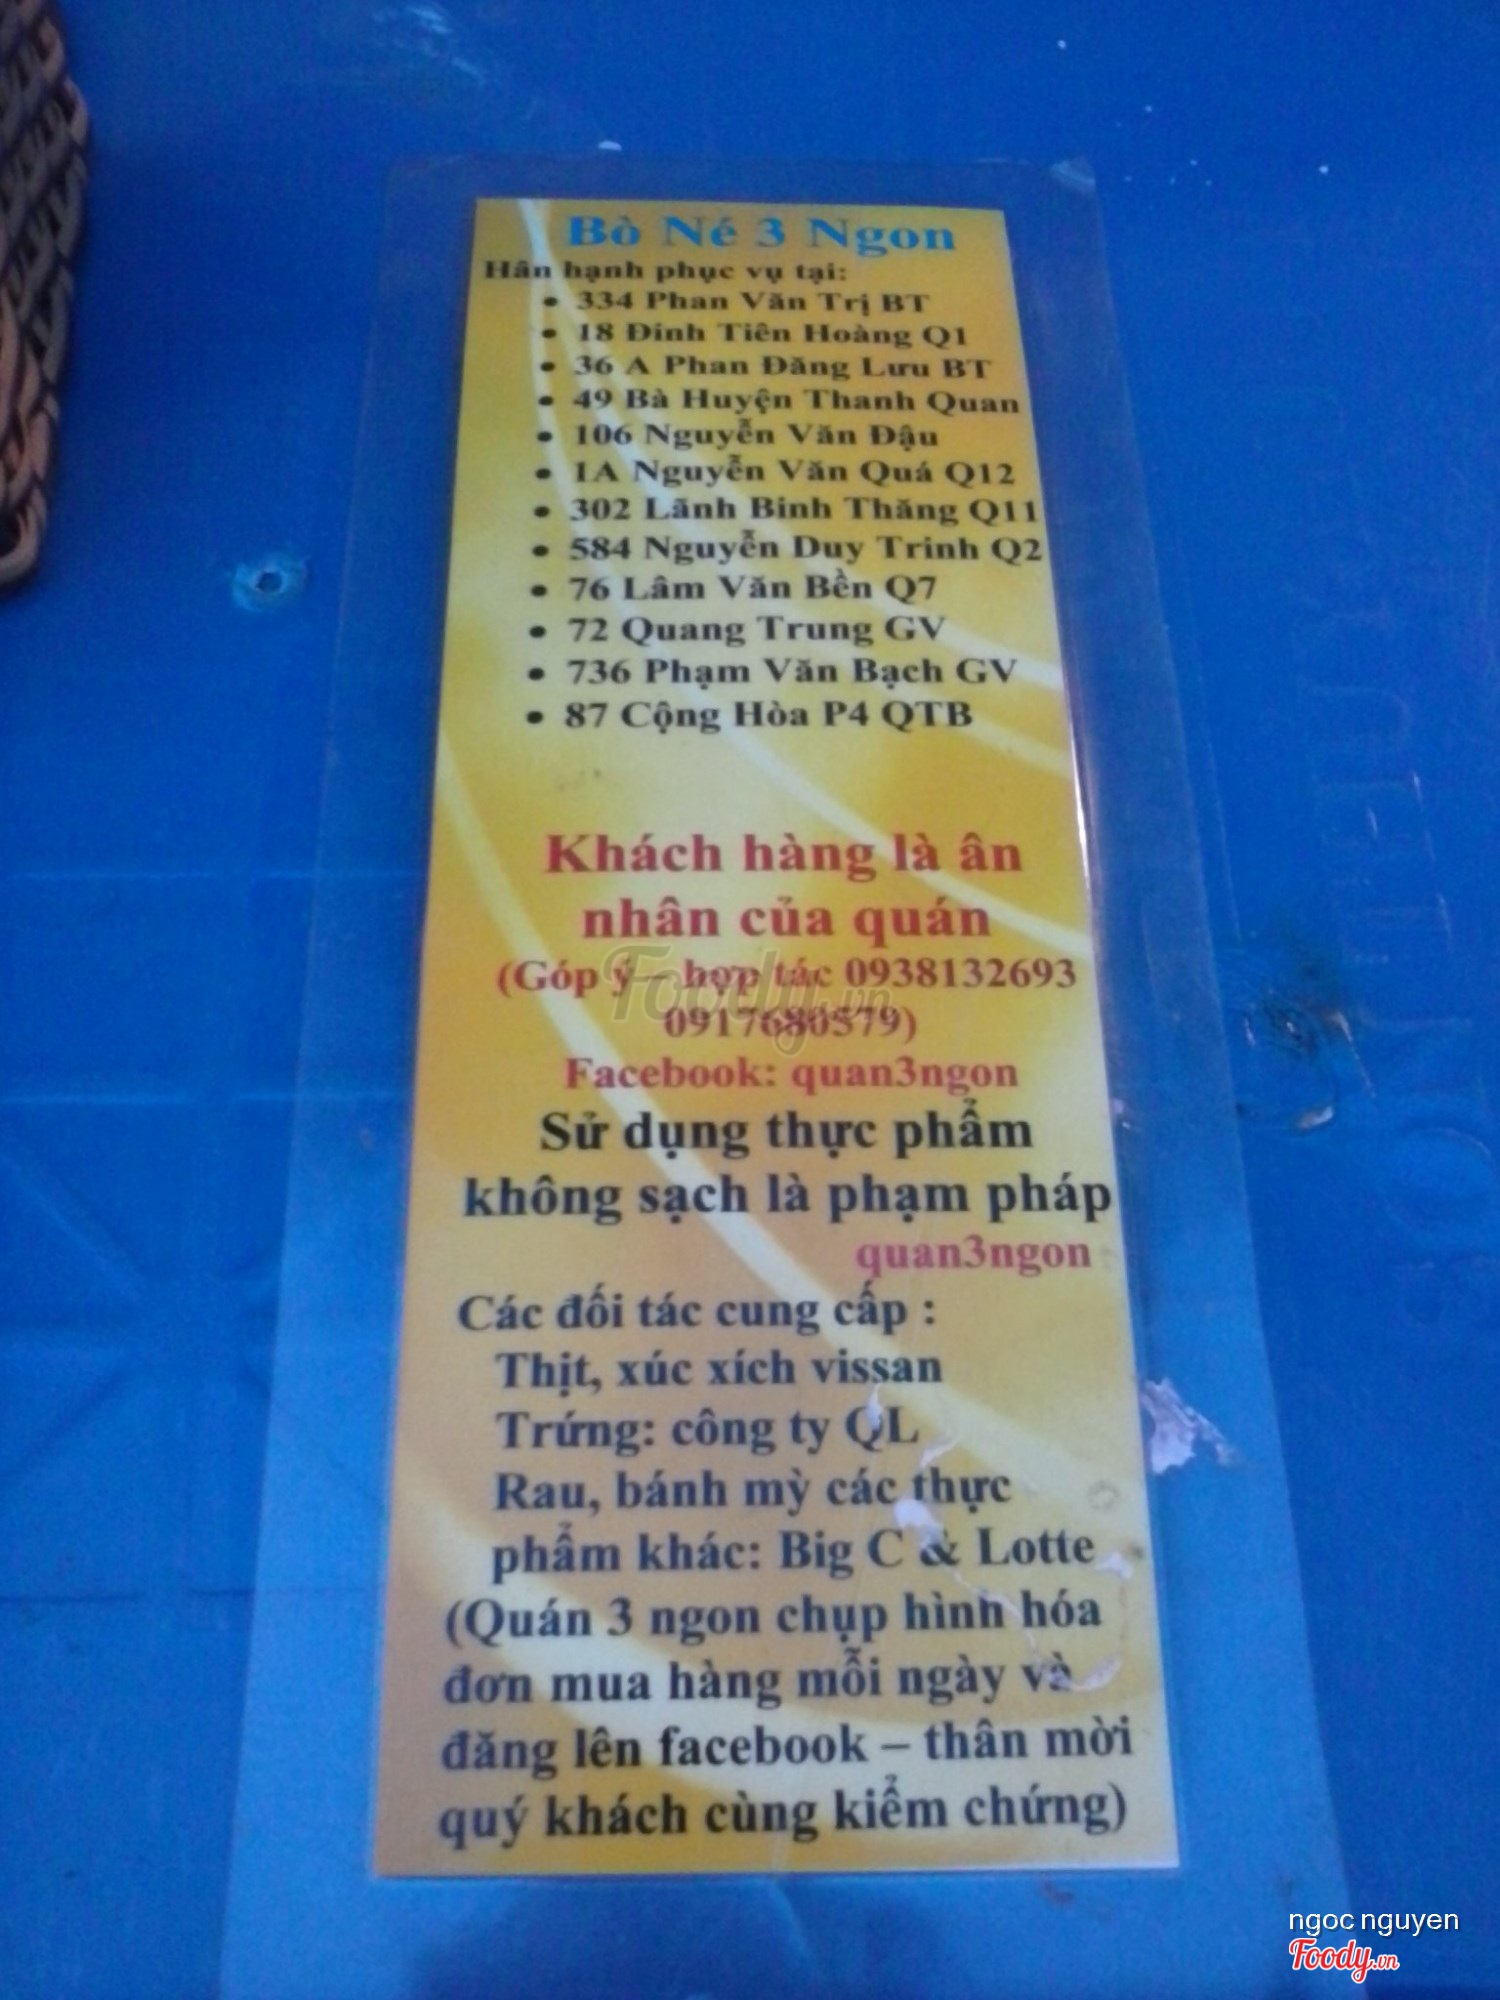 Bò Né 3 Ngon
Hân hạnh phục vụ tại:
• 334 Phan Văn Trị BT
• 18 Đinh Tiên Hoàng Q1
• 36 A Phan Đăng Lưu BT
• 49 Bà Huyện Thanh Quan
• 106 Nguyễn Văn Đậu
• 1A Nguyễn Văn Quá Q12
• 302 Lãnh Binh Thăng Q11
• 584 Nguyễn Duy Trinh Q2
• 76 Lâm Văn Bền Q7
• 72 Quang Trung GV
• 736 Phạm Văn Bạch GV
• 87 Cộng Hòa P4 QTB
Khách hàng là ân
nhân của quán
(Góp ý – hợp tác 0938132693
0917680579)
Foody.vn
Facebook: quan3ngon
Sử dụng thực phẩm
không sạch là phạm pháp
quan3ngon
Các đối tác cung cấp :
Thịt, xúc xích vissan
Trứng: công ty QL
Rau, bánh mỳ các thực
phẩm khác: Big C & Lotte
(Quán 3 ngon chụp hình hóa
đơn mua hàng mỗi ngày và
đăng lên facebook – thân mời
quý khách cùng kiểm chứng)
ngoc nguyen
Foody.vn